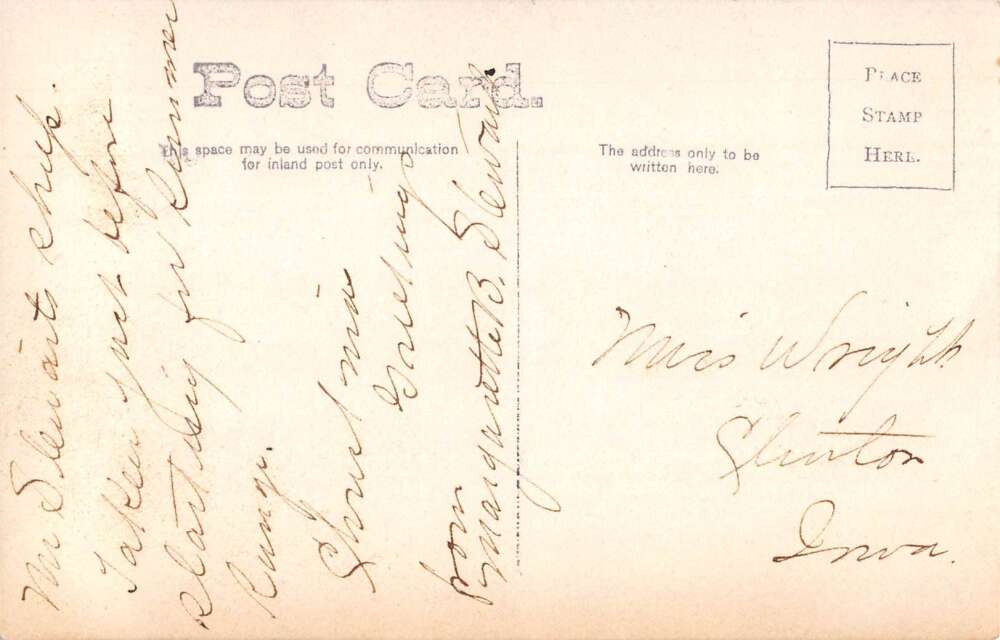 Post Card.
This space may be used for communication
for inland post only.
The address only to be
written here.
PLACE
STAMP
HERE.
Mr Stewarts sheep.
Taken just before
starting for Summer
Range.
Christmas
Greetings
from
Margarette B. Stewart
Miss Wright
Clinton
Iowa.